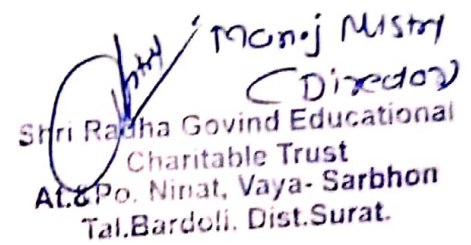 Manoj Mistry
(Director)
Shri Radha Govind Educational
Charitable Trust
At.&Po. Ninat, Vaya- Sarbhon
Tal.Bardoli. Dist.Surat.